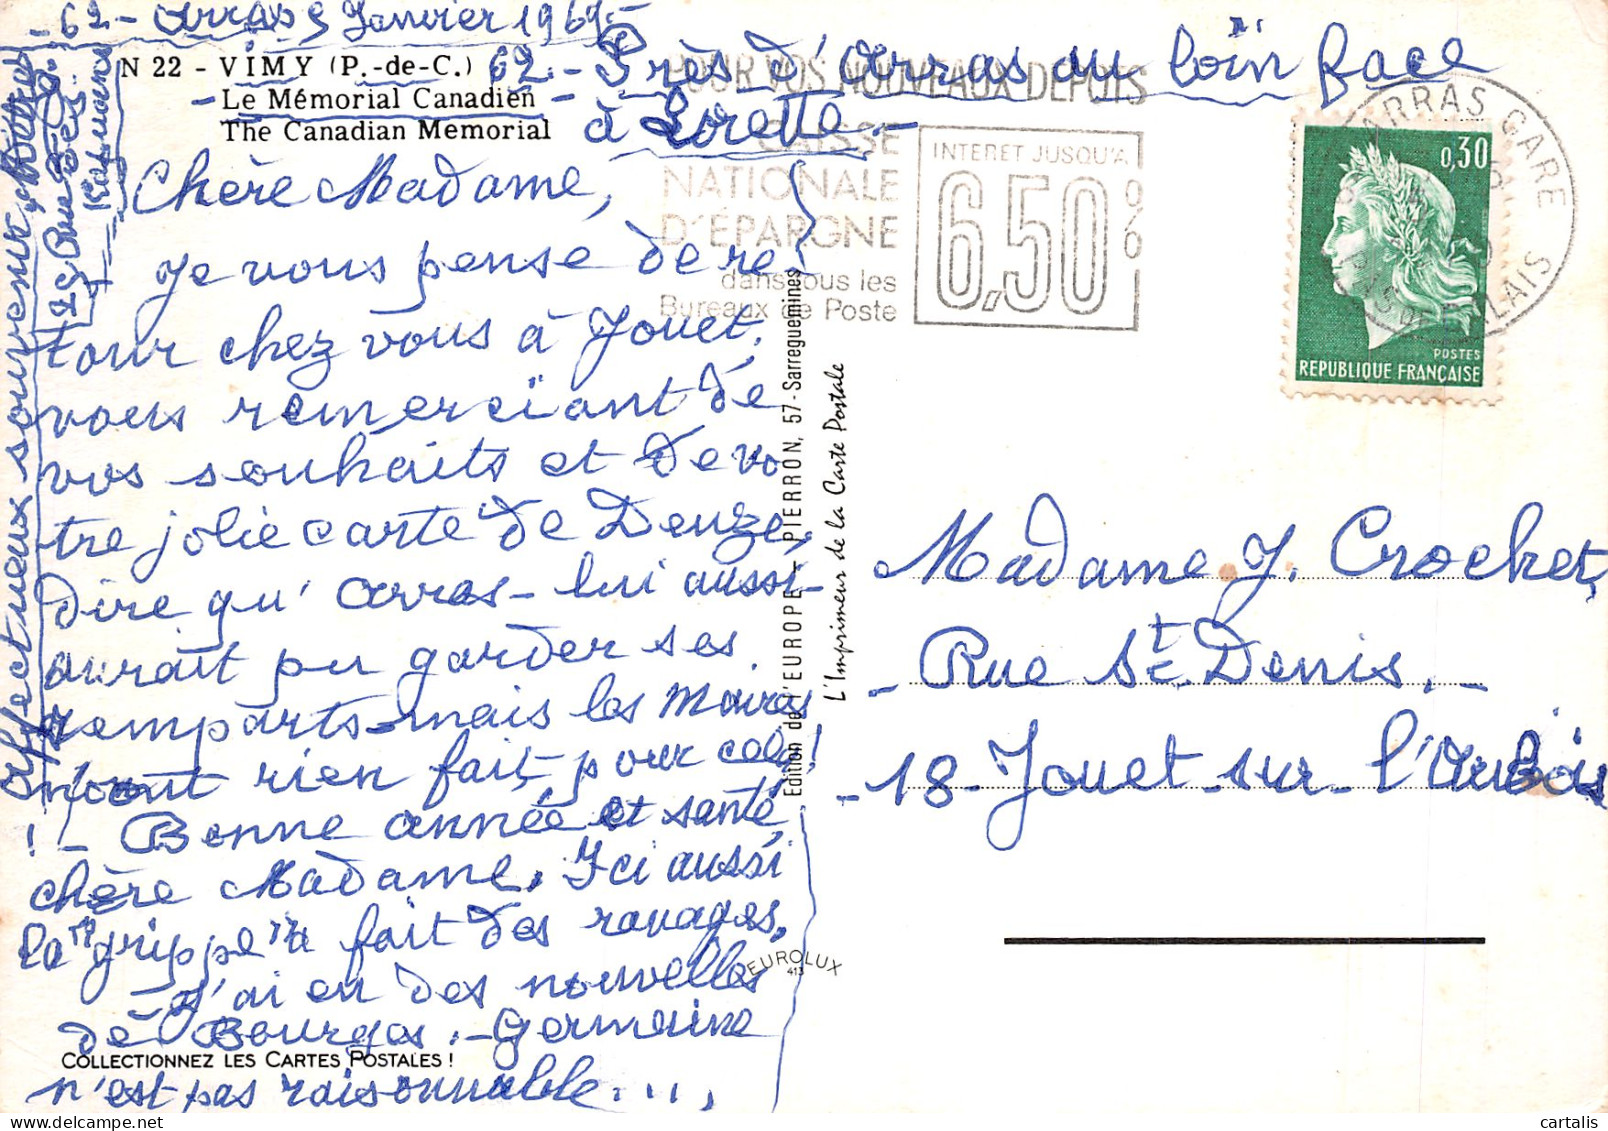 - 62 - Arras 9 Janvier 1969 -
N 22 - VIMY (P.-de-C.) 62. - Près d'Arras au loin face
- Le Mémorial Canadien - à Lorette -
The Canadian Memorial
Chère Madame,
Je vous pense de re
tour chez vous à Jouet.
vous remerciant de
vos souhaits et de vo
tre jolie carte de
dire qu' Arras - lui aussi -
aurait pu garder ses
remparts - mais les Maires
n'ont rien fait pour cela !
! - Bonne année et santé
chère Madame. Ici aussi
la "grippe" a fait des ravages,
J'ai eu des nouvelles
de Bourges. - Germaine
n'est pas raisonnable ...
Affectueux souvenir,
COLLECTIONNEZ LES CARTES POSTALES !
Edition de l'EUROPE - PIERRON, 57 - Sarreguemines
L'Imprimeur de la Carte Postale
EUROLUX
413
POUR VOS NOUVEAUX DEPOTS
CAISSE
NATIONALE
D'EPARGNE
dans tous les
Bureaux de Poste
INTERET JUSQU'A
6,50 %
ARRAS GARE
PAS DE CALAIS
0,30
POSTES
REPUBLIQUE FRANÇAISE
Madame J. Crochet,
- Rue St. Denis. -
- 18 - Jouet - sur - l'Aubois
cartalis